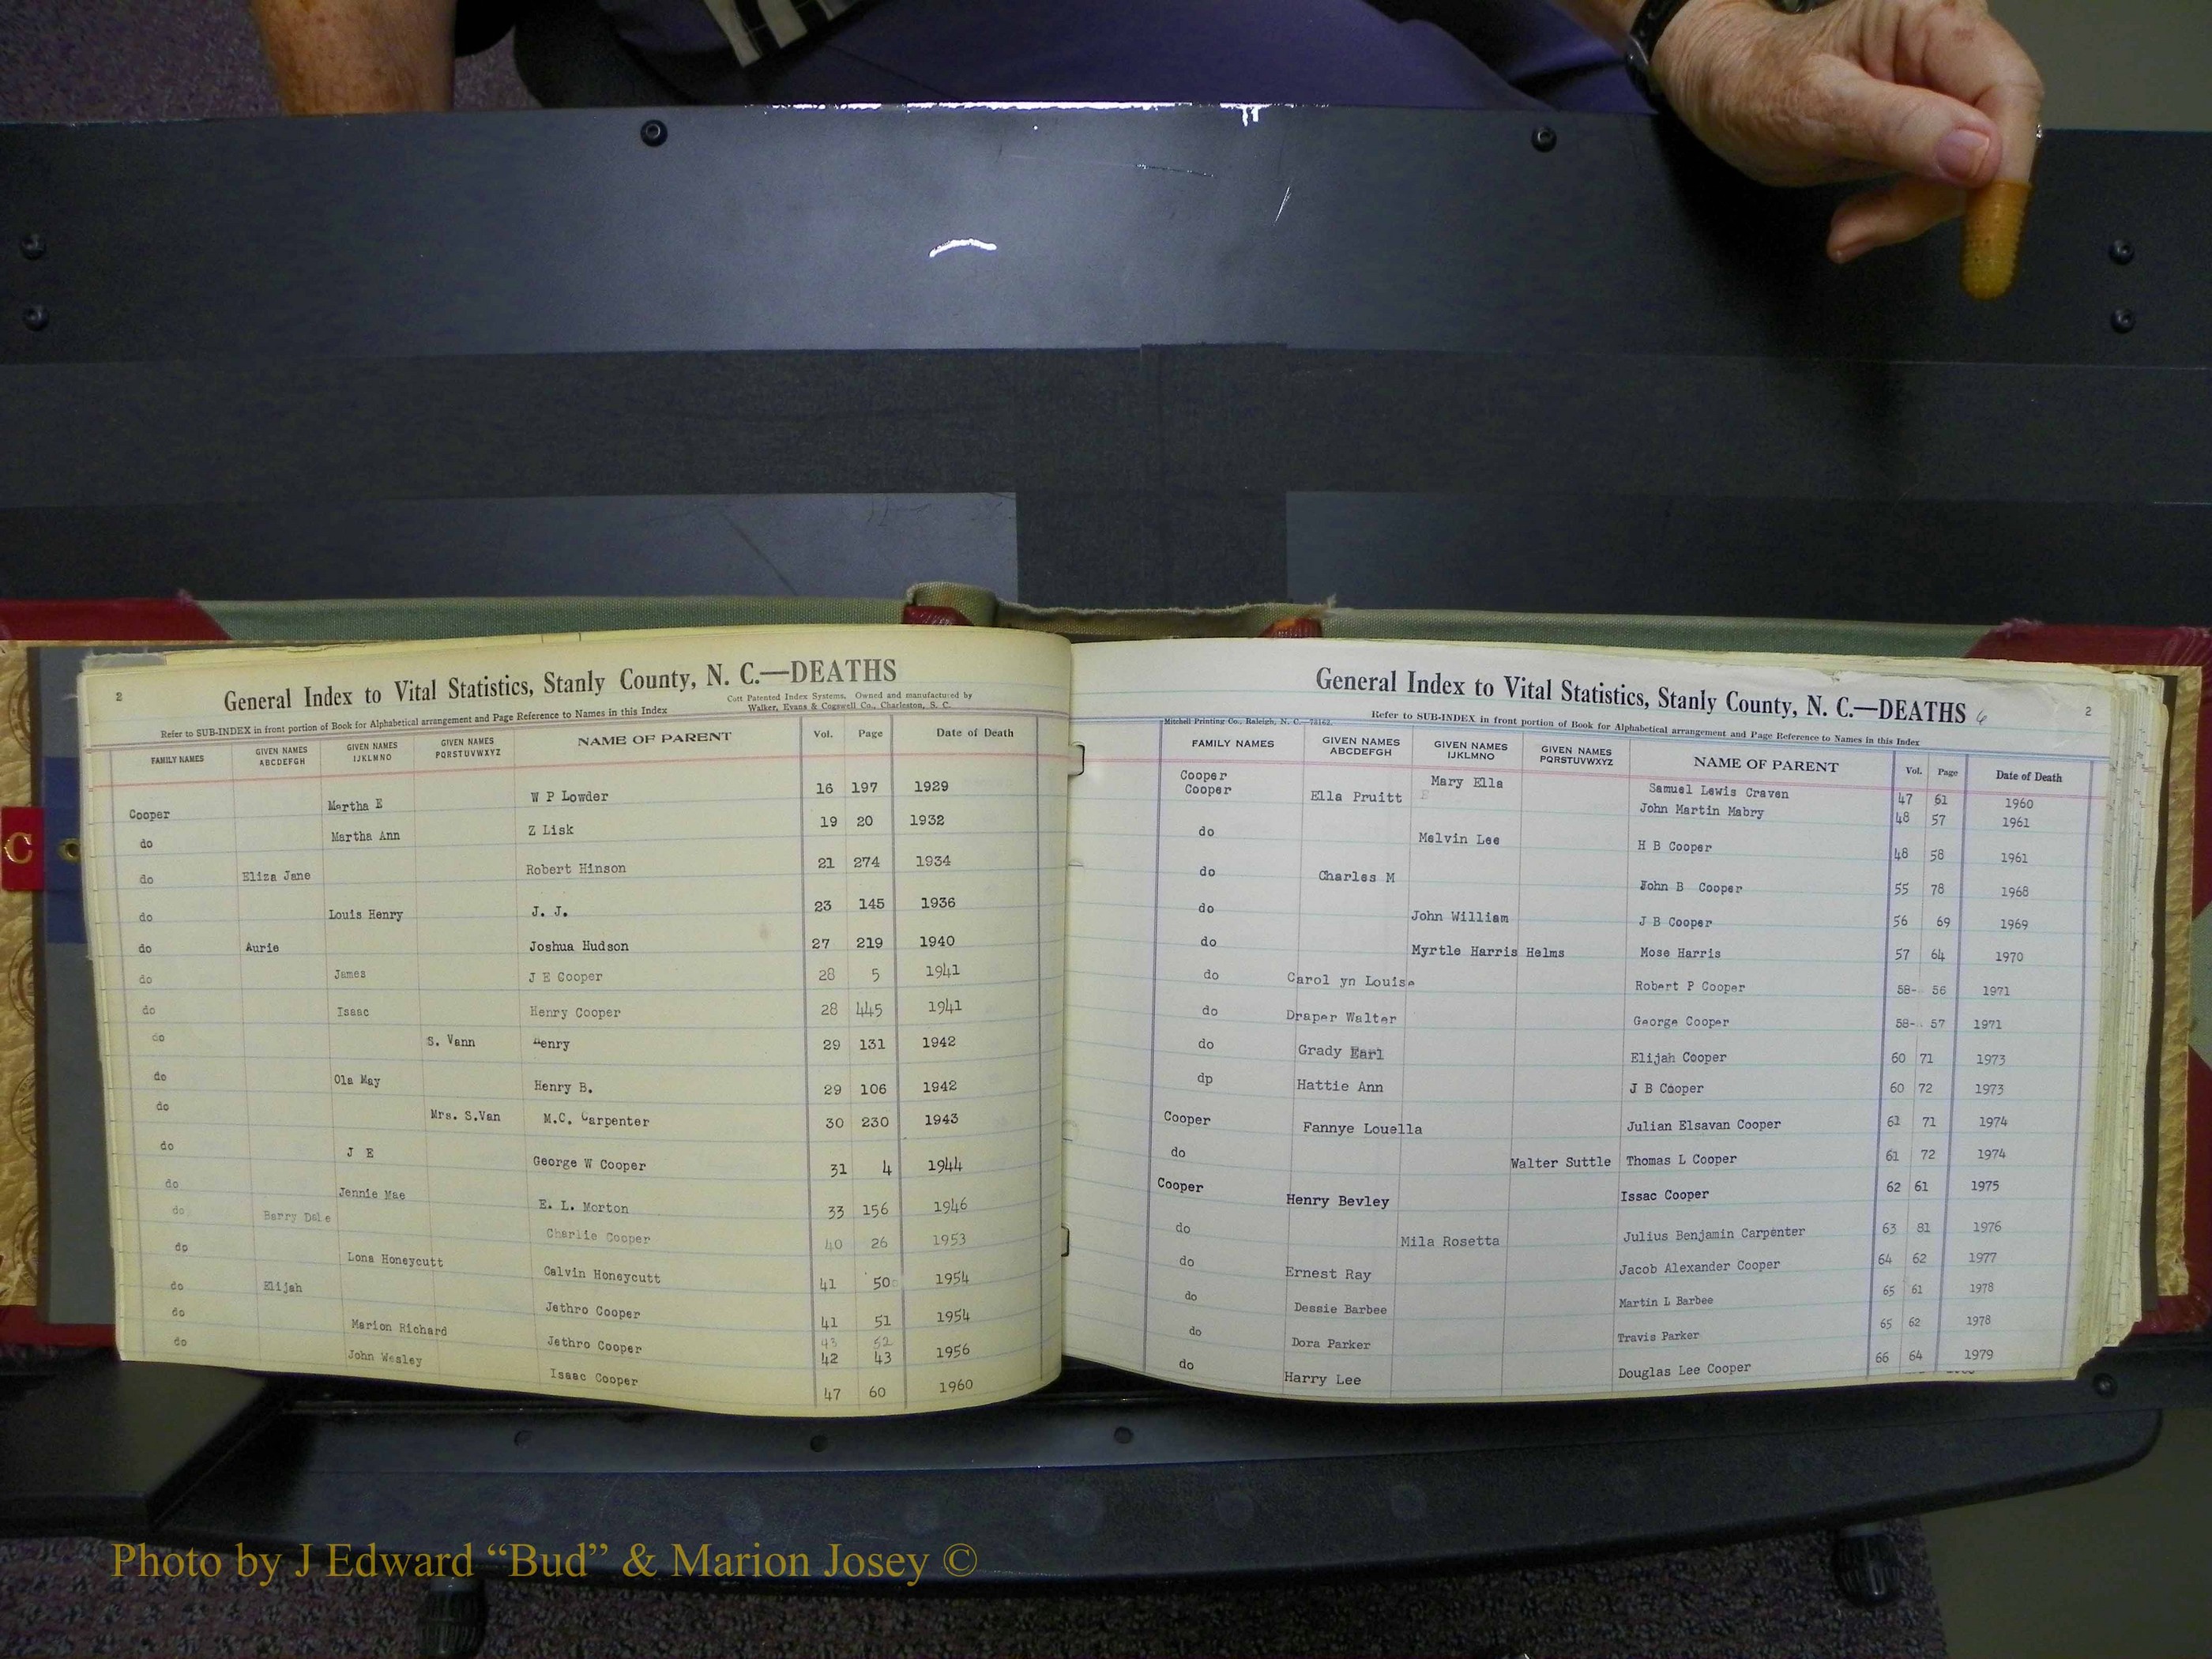 2
General Index to Vital Statistics, Stanly County, N. C.—DEATHS
Cott Patented Index Systems, Owned and manufactured by
Walker, Evans & Cogswell Co., Charleston, S. C.
Refer to SUB-INDEX in front portion of Book for Alphabetical arrangement and Page Reference to Names in this Index
FAMILY NAMES GIVEN NAMES ABCDEFGH GIVEN NAMES IJKLMNO GIVEN NAMES PQRSTUVWXYZ NAME OF PARENT Vol. Page Date of Death
Cooper Martha E W P Lowder 16 197 1929
do Martha Ann Z Lisk 19 20 1932
do Eliza Jane Robert Hinson 21 274 1934
do Louis Henry J. J. 23 145 1936
do Aurie Joshua Hudson 27 219 1940
do James J E Cooper 28 5 1941
do Isaac Henry Cooper 28 445 1941
do S. Vann Henry 29 131 1942
do Ola May Henry B. 29 106 1942
do Mrs. S.Van M.C. Carpenter 30 230 1943
do J E George W Cooper 31 4 1944
do Jennie Mae E. L. Morton 33 156 1946
do Barry Dale Charlie Cooper 40 26 1953
dp Lona Honeycutt Calvin Honeycutt 41 50 1954
do Elijah Jethro Cooper 41 51 1954
do Marion Richard Jethro Cooper 43 52
42 43 1956
do John Wesley Isaac Cooper 47 60 1960
C
General Index to Vital Statistics, Stanly County, N. C.—DEATHS 6
2
Mitchell Printing Co., Raleigh, N. C.—78162.
Refer to SUB-INDEX in front portion of Book for Alphabetical arrangement and Page Reference to Names in this Index
FAMILY NAMES GIVEN NAMES ABCDEFGH GIVEN NAMES IJKLMNO GIVEN NAMES PQRSTUVWXYZ NAME OF PARENT Vol. Page Date of Death
Cooper Mary Ella Samuel Lewis Craven 47 61 1960
Cooper Ella Pruitt John Martin Mabry 48 57 1961
do Melvin Lee H B Cooper 48 58 1961
do Charles M John B Cooper 55 78 1968
do John William J B Cooper 56 69 1969
do Myrtle Harris Helms Mose Harris 57 64 1970
do Carol yn Louise Robert P Cooper 58- 56 1971
do Draper Walter George Cooper 58- 57 1971
do Grady Earl Elijah Cooper 60 71 1973
dp Hattie Ann J B Cooper 60 72 1973
Cooper Fannye Louella Julian Elsavan Cooper 61 71 1974
do Walter Suttle Thomas L Cooper 61 72 1974
Cooper Henry Bevley Issac Cooper 62 61 1975
do Mila Rosetta Julius Benjamin Carpenter 63 81 1976
do Ernest Ray Jacob Alexander Cooper 64 62 1977
do Dessie Barbee Martin L Barbee 65 61 1978
do Dora Parker Travis Parker 65 62 1978
do Harry Lee Douglas Lee Cooper 66 64 1979
Photo by J Edward “Bud” & Marion Josey ©